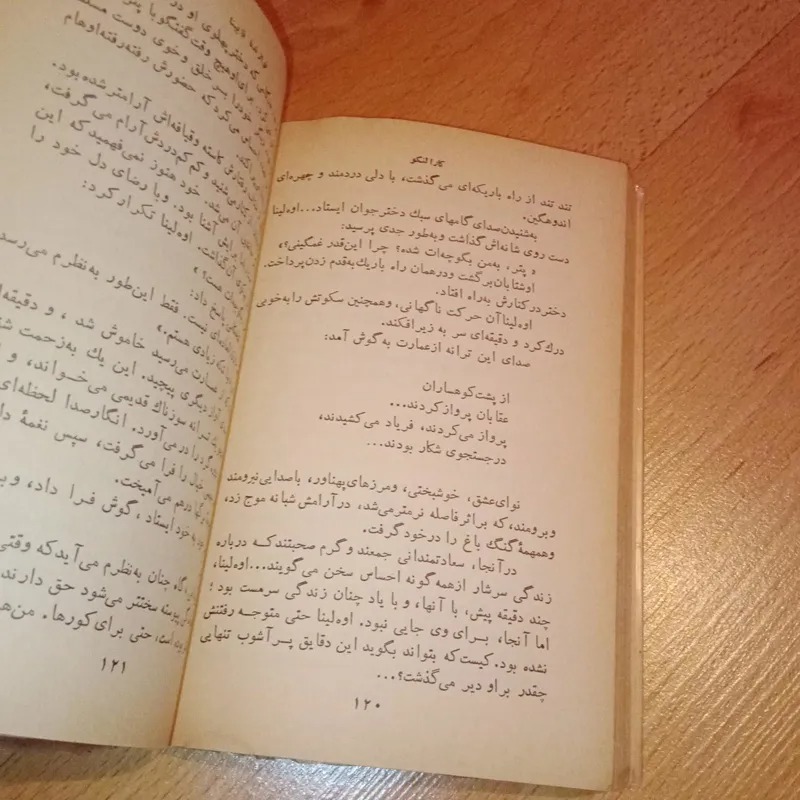 کارالنکو
تند تند از راه باریکه‌ای می‌گذشت، با دلی دردمند و چهره‌ای
اندوهگین.
به‌شنیدن‌صدای گامهای سبك دخترجوان ایستاد...اوه‌لینا
دست روی شانه‌اش گذاشت و به‌طور جدی پرسید:
« پتر، به‌من بگوچه‌ات شده؟ چرا این‌قدر غمگینی؟»
اوشتابان‌برگشت ودرهمان راه باریك‌به‌قدم زدن‌پرداخت.
دختردرکنارش به‌راه افتاد.
اوه‌لیناآن حرکت ناگهانی، وهمچنین سکوتش رابه‌خوبی
درك‌کرد و دقیقه‌ای سر به زیرافکند.
صدای این ترانه ازعمارت به‌گوش آمد:
از پشت‌کوهساران
عقابان پروازکردند...
پرواز می‌کردند، فریاد می‌کشیدند،
درجستجوی شکار بودند...
نوای‌عشق، خوشبختی، ومرزهای‌پهناور، باصدایی‌نیرومند
وبرومند،که براثرفاصله نرمترمی‌شد، درآرامش شبانه موج زد،
وهمهمهٔ‌گنگ باغ را درخودگرفت.
درآنجا، سعادتمندانی جمعند وگرم صحبتندکه درباره
زندگی سرشار ازهمه‌گونه احساس سخن می‌گویند...اوه‌لینا،
چند دقیقه پیش، با آنها، و با یاد چنان زندگی سرمست بود؛
اما آنجا، برای وی جایی نبود. اوه‌لینا حتی متوجه رفتنش
نشده بود. کیست‌که بتواند بگوید این دقایق پرآشوب تنهایی
چقدر براو دیر می‌گذشت؟...
۱۲۰
که دختربهلوی او در
برای‌اوهیچ وقت‌گفتگوبا پتر
خودرا بر خلق وخوی دوست
می‌کردکه حضورش رفته‌رفته‌اوهام
کاسته وقیافه‌اش آرامترشده بود.
می‌شنید وکم‌کم‌دردش‌آرام می‌گرفت،
آن می‌شد. خود هنوز نمی‌فهمیدکه این
آشنا بود. وبا رضای دل خود را
آن‌گذاشت. اوه‌لینا تکرارکرد:
هست؟»
پاسخ داد:
نیست. فقط این‌طور به‌نظرم می‌رسد
زیادی هستم.»
عمارت می‌رسید خاموش شد ، و دقیقه‌ای
آواز دیگری پیچید. این یك به‌زحمت
ترانه سوزناك قدیمی می‌خواند، و
را درمی‌آورد. انگارصدا لحظه‌ای
خیال را فرا می‌گرفت، سپس نغمهٔ
درهم می‌آمیخت.
به خود ایستاد ،گوش فرا داد،
گاه چنان به‌نظرم می‌آیدکه وقتی
پیوسته سختتر می‌شود حق دارند
است، حتی برای‌کورها.
۱۲۱